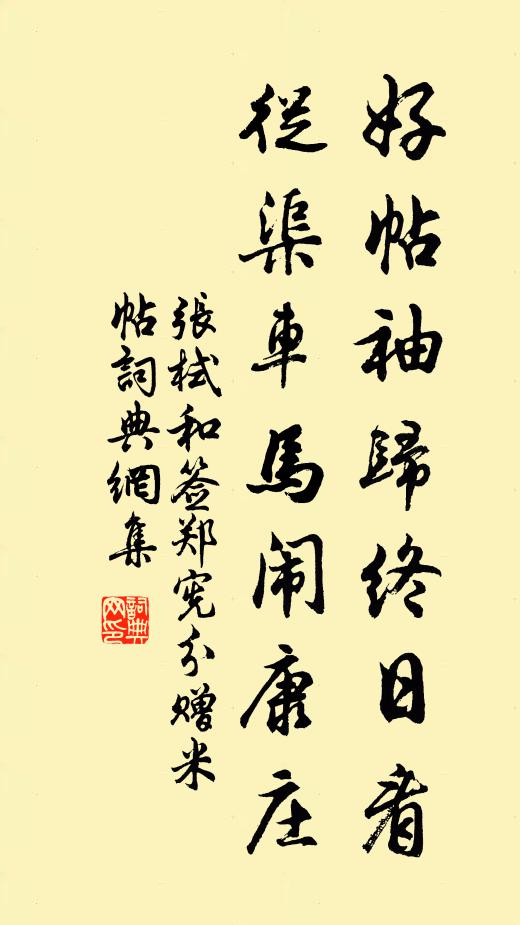 好帖袖歸終日看
從渠車馬闹康庄
張栻和签郑宪分赠米
帖詞典網集
詞典
网印